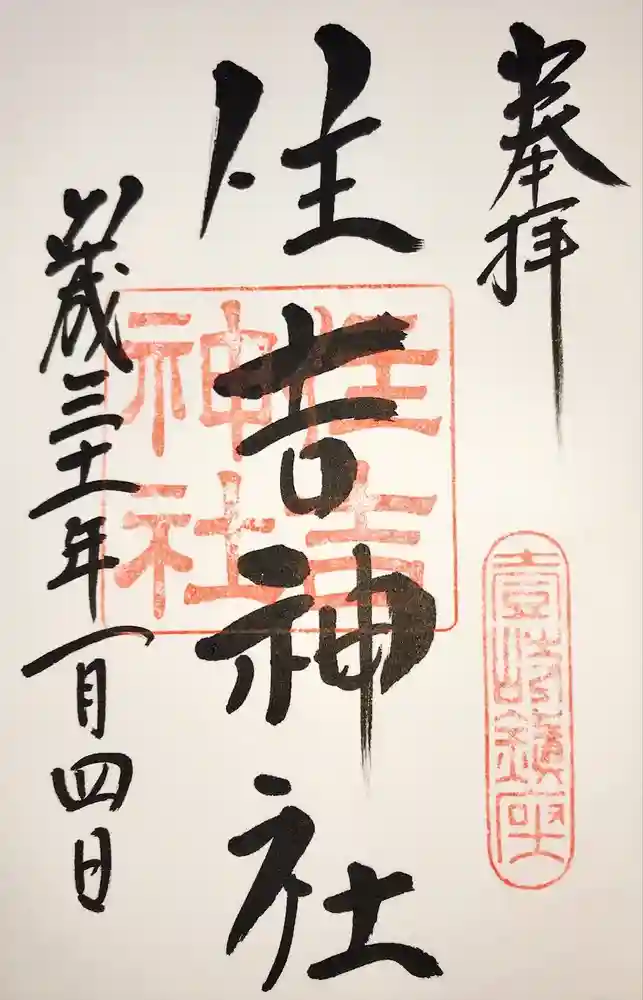 奉拝
壹岐鎮座
住吉神社
住吉
神社
平成三十一年一月四日